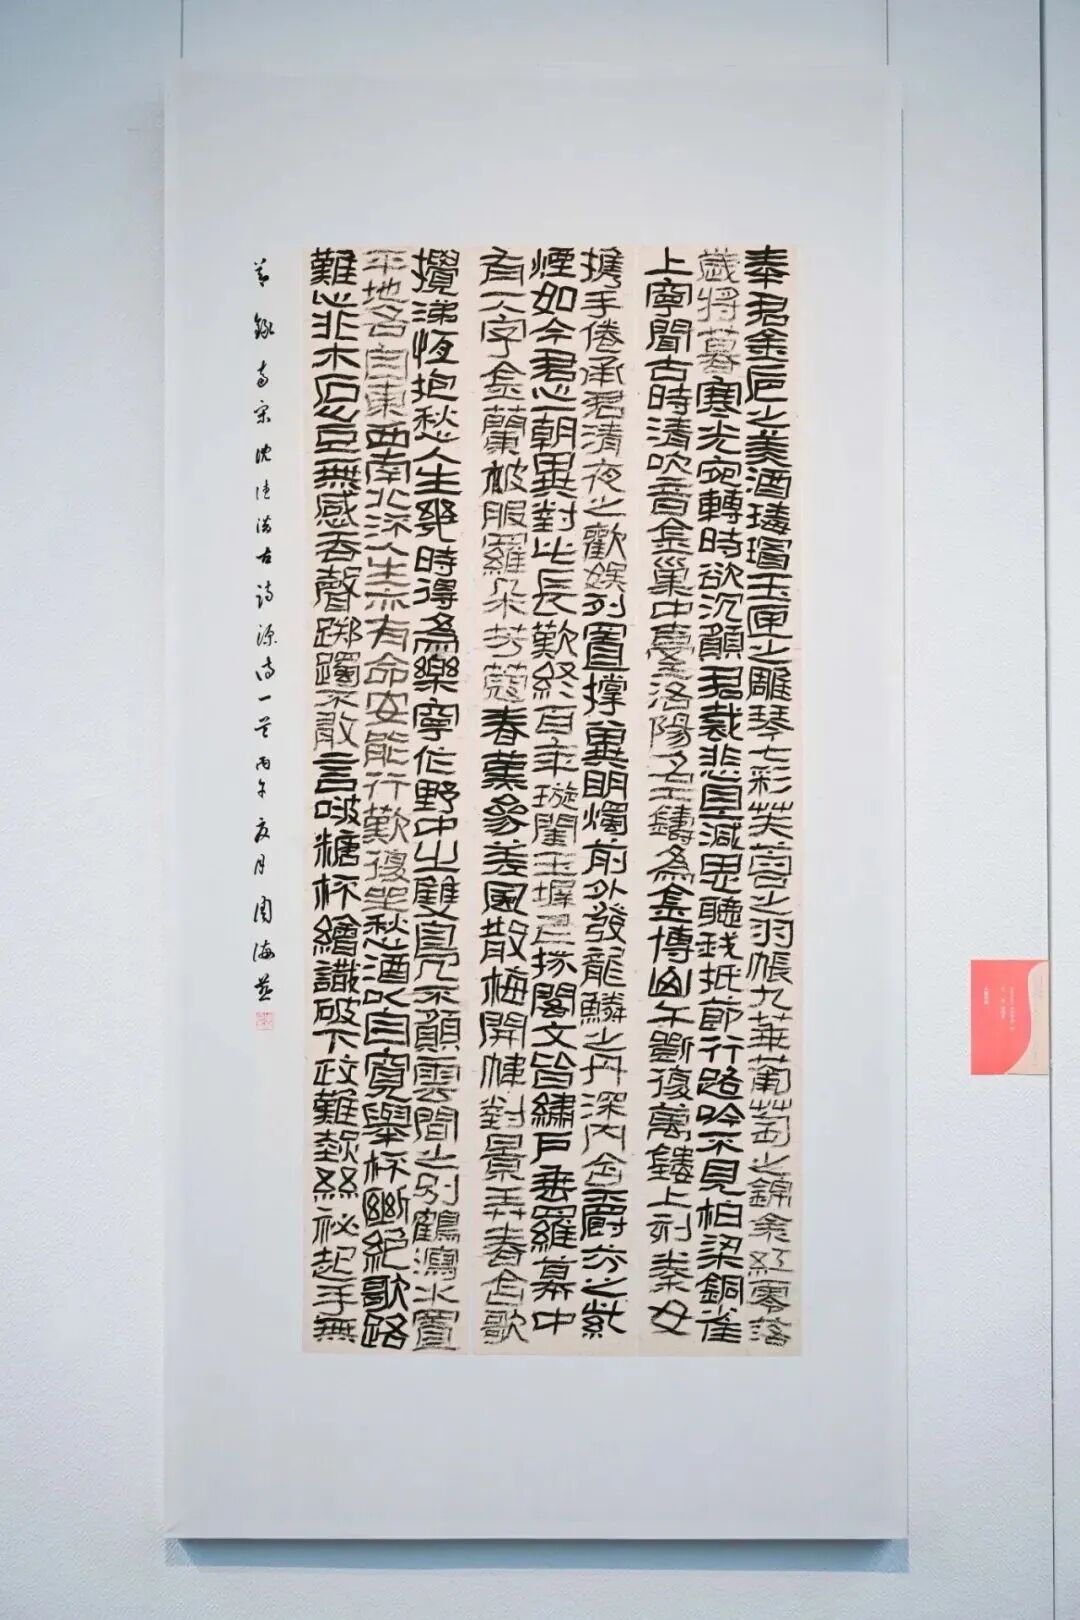 奉君金卮之美酒瑇瑁玉匣之雕琴七彩芙蓉之羽帳九華葡萄之錦衾紅零落
歲將暮寒光宛轉時欲沉願君裁悲且減思聽我抵節行路吟不見柏梁銅雀
上寧聞古時清吹音金巢中洛陽名工鑄為金博山千斲復萬鏤上刻秦女
攜手承君清夜之歡娛列置明燭前外發龍鱗之丹內含之紫
煙如今君心一朝異對此長歎終百年璇閨玉墀上椒閣文繡戶垂羅幕中
有一人字金蘭被服羅采芳春燕參差風散梅開幃對景弄春含歌
攬涕恆抱愁人生幾時得為樂寧作野中之雙鳧不願雲間之別鶴瀉水置
平地各自東西南北流人生亦有命安能行歎復坐愁酒以自寬舉杯斷絕歌路
難心非木石豈無感吞聲躑躅不敢言糖杯繪識破下難起手無
節錄宋沈德潛古詩源詩一首丙午夏月周海燕